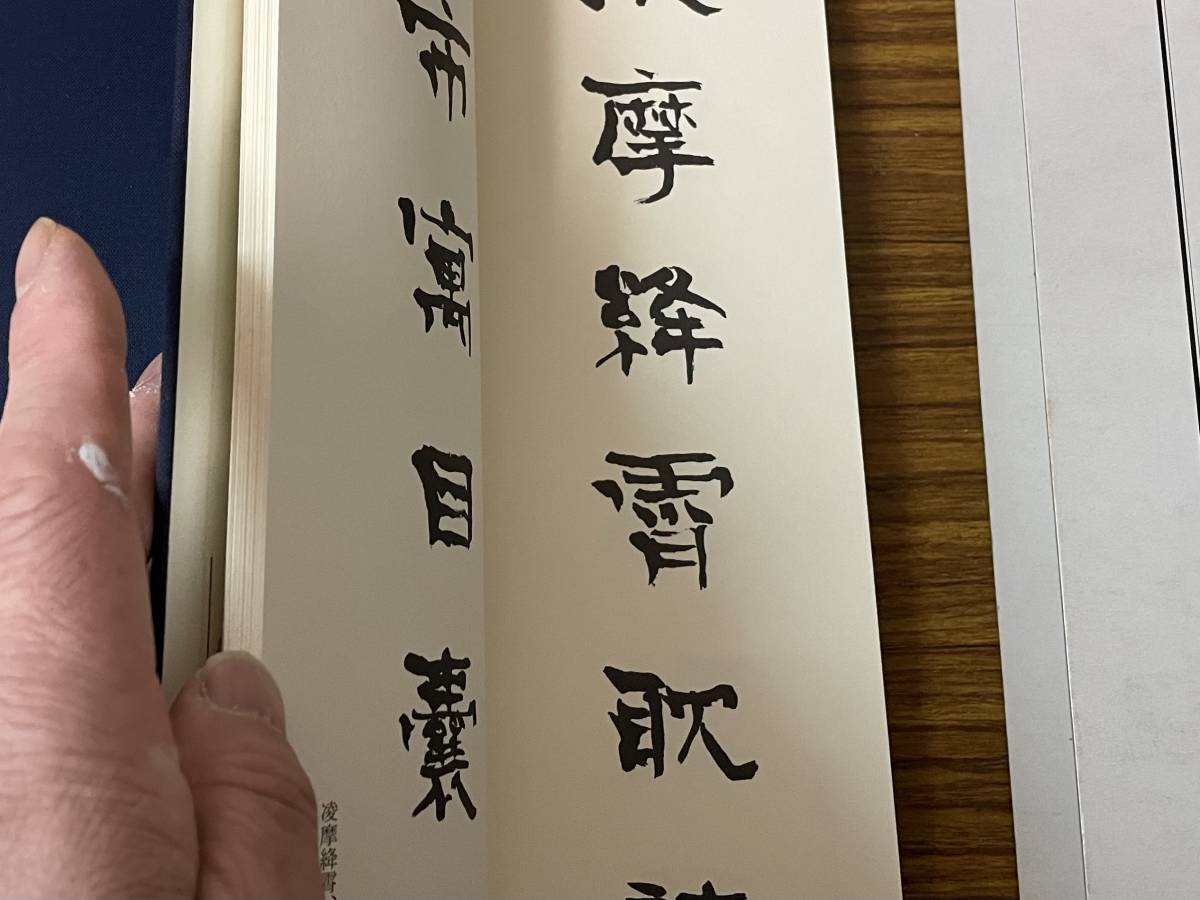 摩絳霄耽
寓目囊
凌摩絳霄